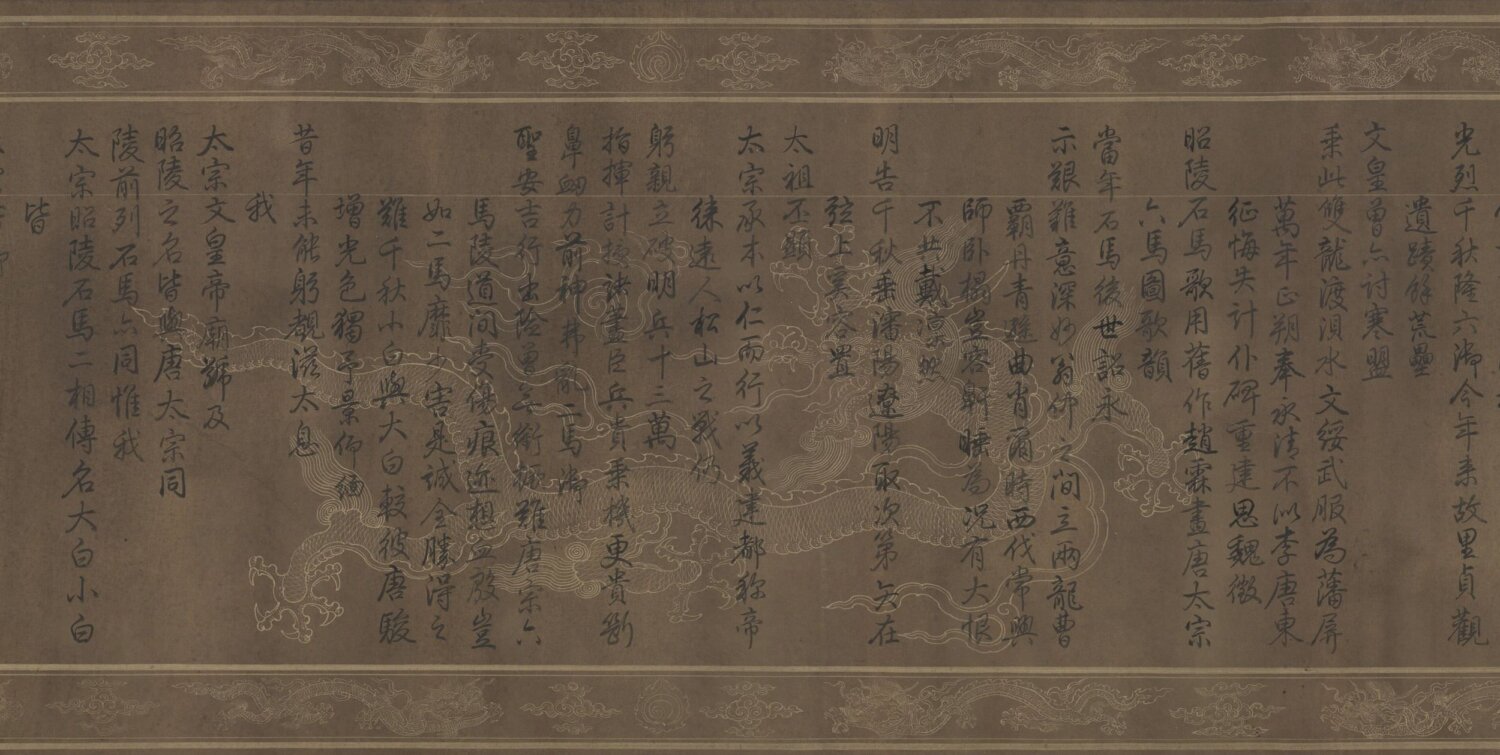 光烈千秋隆六御今年來故里貞觀
遺蹟餘荒壘
文皇曾亦討寒盟
乘此雙龍渡浿水文綏武服為藩屏
萬年正朔奉永清不似李唐東
征悔失計仆碑重建思魏徵
昭陵石馬歌用舊作趙霖畫唐太宗
六馬圖歌韻
當年石馬後世詔永
示艱難意深妙翁仲之間立兩龍曹
霸丹青遜曲肖爾時西伐常興
師卧榻豈容鼾睡為況有大恨
不共戴凜然
明告千秋垂瀋陽遼陽取次第矢在
弦上奚容置
太祖丕顯
太宗承本以仁而行以義建都稱帝
徠遠人松山之戰仍
躬親立破明兵十三萬
指揮計授諸藎臣兵貴乘機更貴斷
鼻衄力前神弗亂二馬御
聖安吉行出險曾無銜橛難唐宗六
馬陵道間受傷痕迹想血殷豈
如二馬靡少害是誠全勝得之
難千秋小白與大白較彼唐駿
增光色獨予景仰緬
昔年未能躬覩滋太息
我
太宗文皇帝廟號及
昭陵之名皆與唐太宗同
陵前列石馬亦同惟我
太宗昭陵石馬二相傳名大白小白
皆